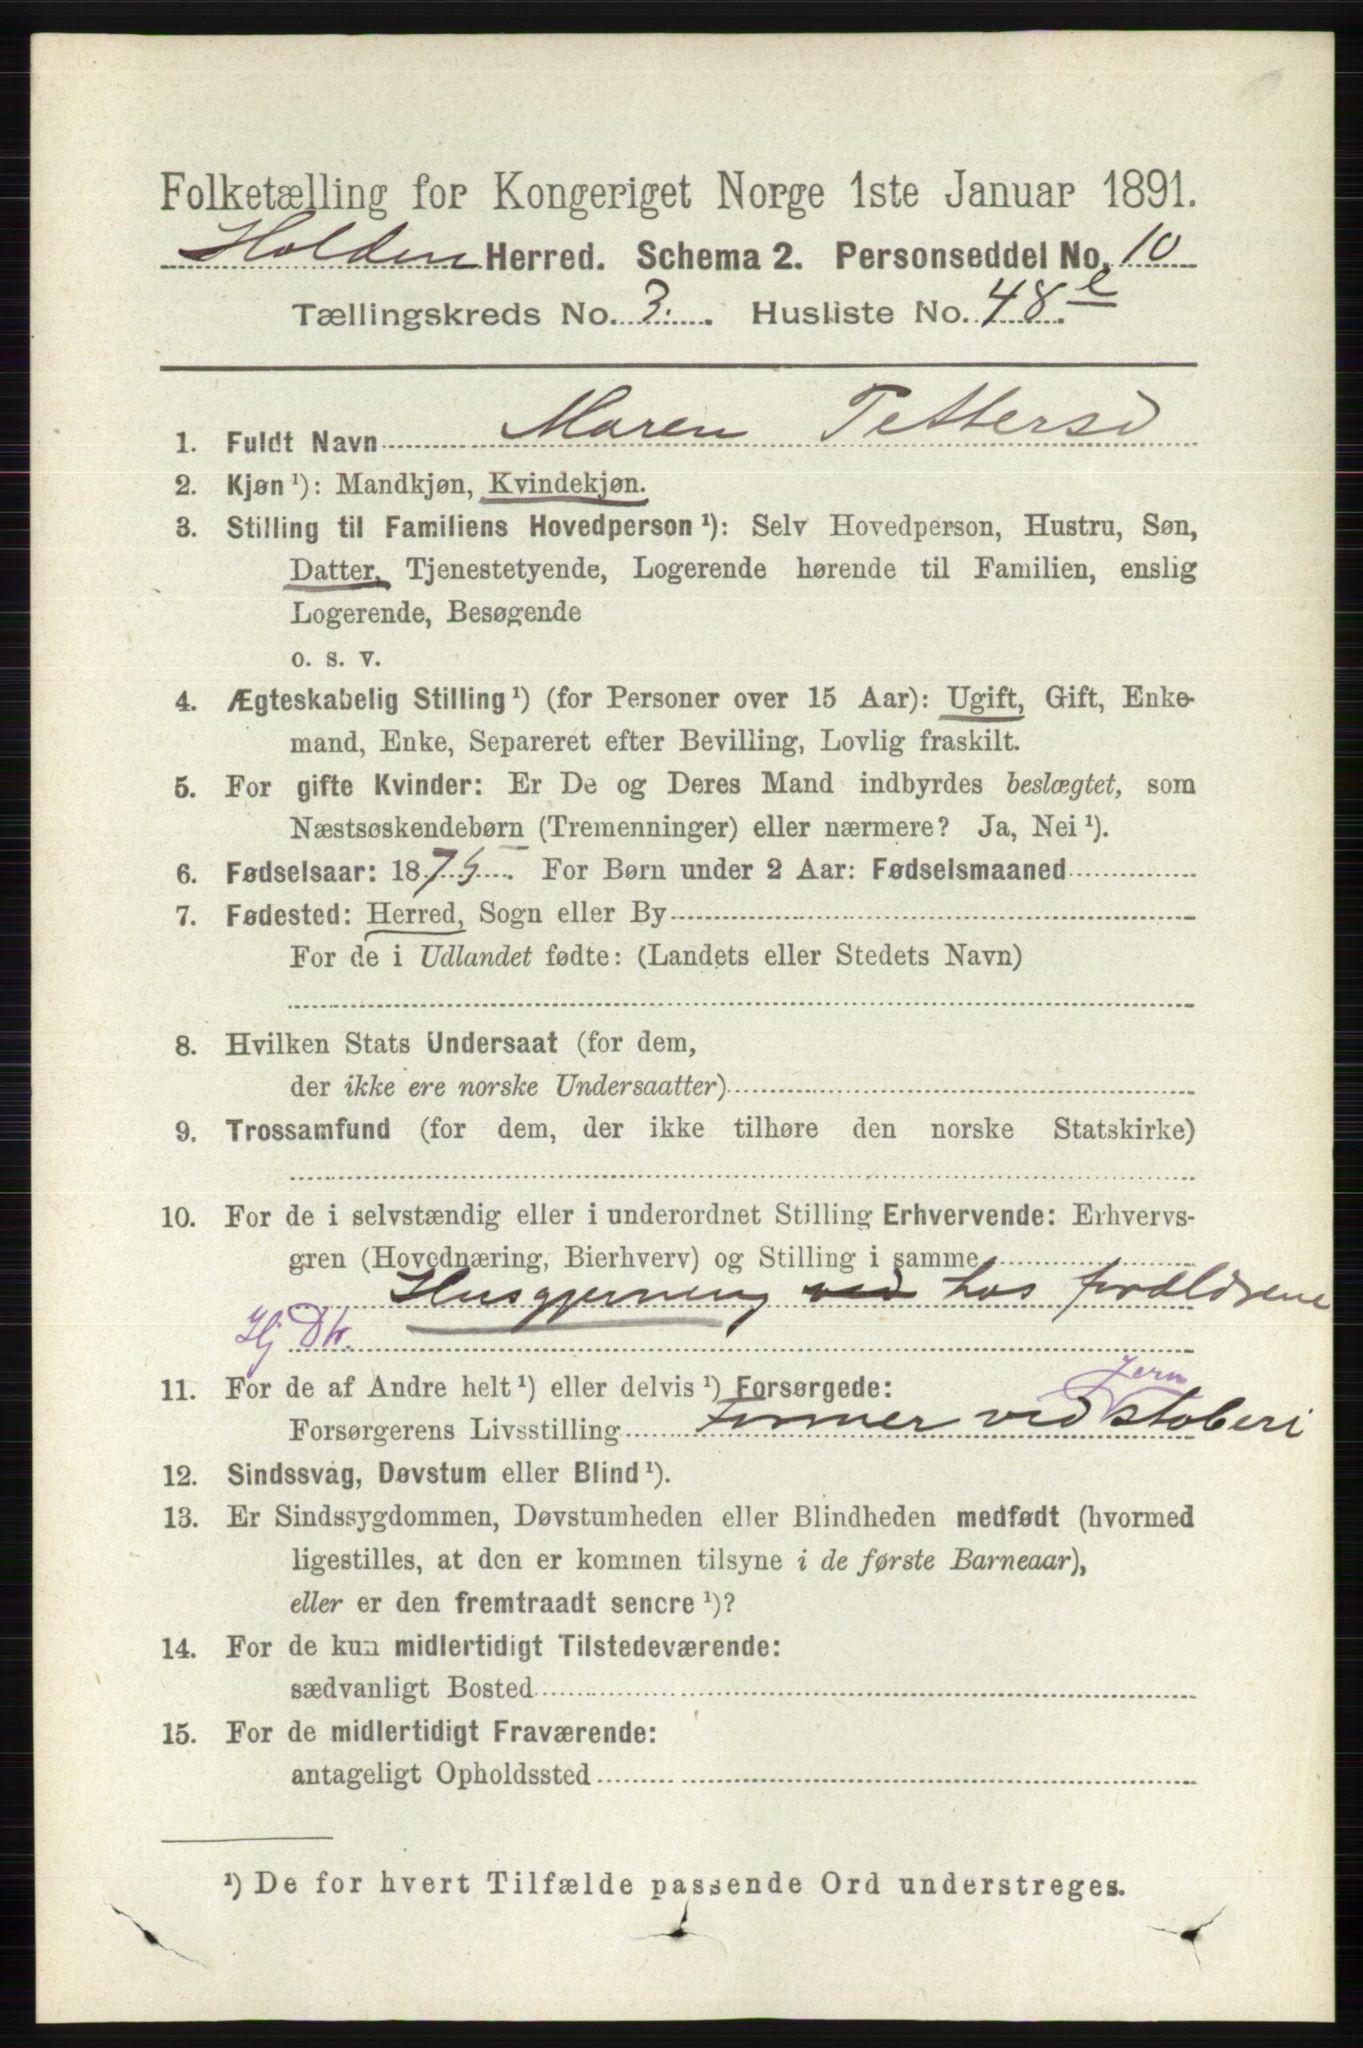 Folketælling for Kongeriget Norge 1ste Januar 1891.
Holden Herred. Schema 2. Personseddel No. 10
Tællingskreds No. 3. Husliste No. 48 e
1. Fuldt Navn Maren Pettersd
2. Kjøn ¹): Mandkjøn, Kvindekjøn.
3. Stilling til Familiens Hovedperson ¹): Selv Hovedperson, Hustru, Søn,
Datter, Tjenestetyende, Logerende hørende til Familien, enslig
Logerende, Besøgende
o. s. v.
4. Ægteskabelig Stilling ¹) (for Personer over 15 Aar): Ugift, Gift, Enke-
mand, Enke, Separeret efter Bevilling, Lovlig fraskilt.
5. For gifte Kvinder: Er De og Deres Mand indbyrdes beslægtet, som
Næstsøskendebørn (Tremenninger) eller nærmere? Ja, Nei ¹).
6. Fødselsaar: 1875. For Børn under 2 Aar: Fødselsmaaned
7. Fødested: Herred, Sogn eller By
For de i Udlandet fødte: (Landets eller Stedets Navn)
8. Hvilken Stats Undersaat (for dem,
der ikke ere norske Undersaatter)
9. Trossamfund (for dem, der ikke tilhøre den norske Statskirke)
10. For de i selvstændig eller i underordnet Stilling Erhvervende: Erhvervs-
gren (Hovednæring, Bierhverv) og Stilling i samme
Husgjerning ved hos forældrene
Hj Dtr.
11. For de af Andre helt ¹) eller delvis ¹) Forsørgede:
Jern
Forsørgerens Livsstilling Former ved støberi
12. Sindssvag, Døvstum eller Blind ¹).
13. Er Sindssygdommen, Døvstumheden eller Blindheden medfødt (hvormed
ligestilles, at den er kommen tilsyne i de første Barneaar),
eller er den fremtraadt senere ¹)?
14. For de kun midlertidigt Tilstedeværende:
sædvanligt Bosted
15. For de midlertidigt Fraværende:
antageligt Opholdssted
¹) De for hvert Tilfælde passende Ord understreges.